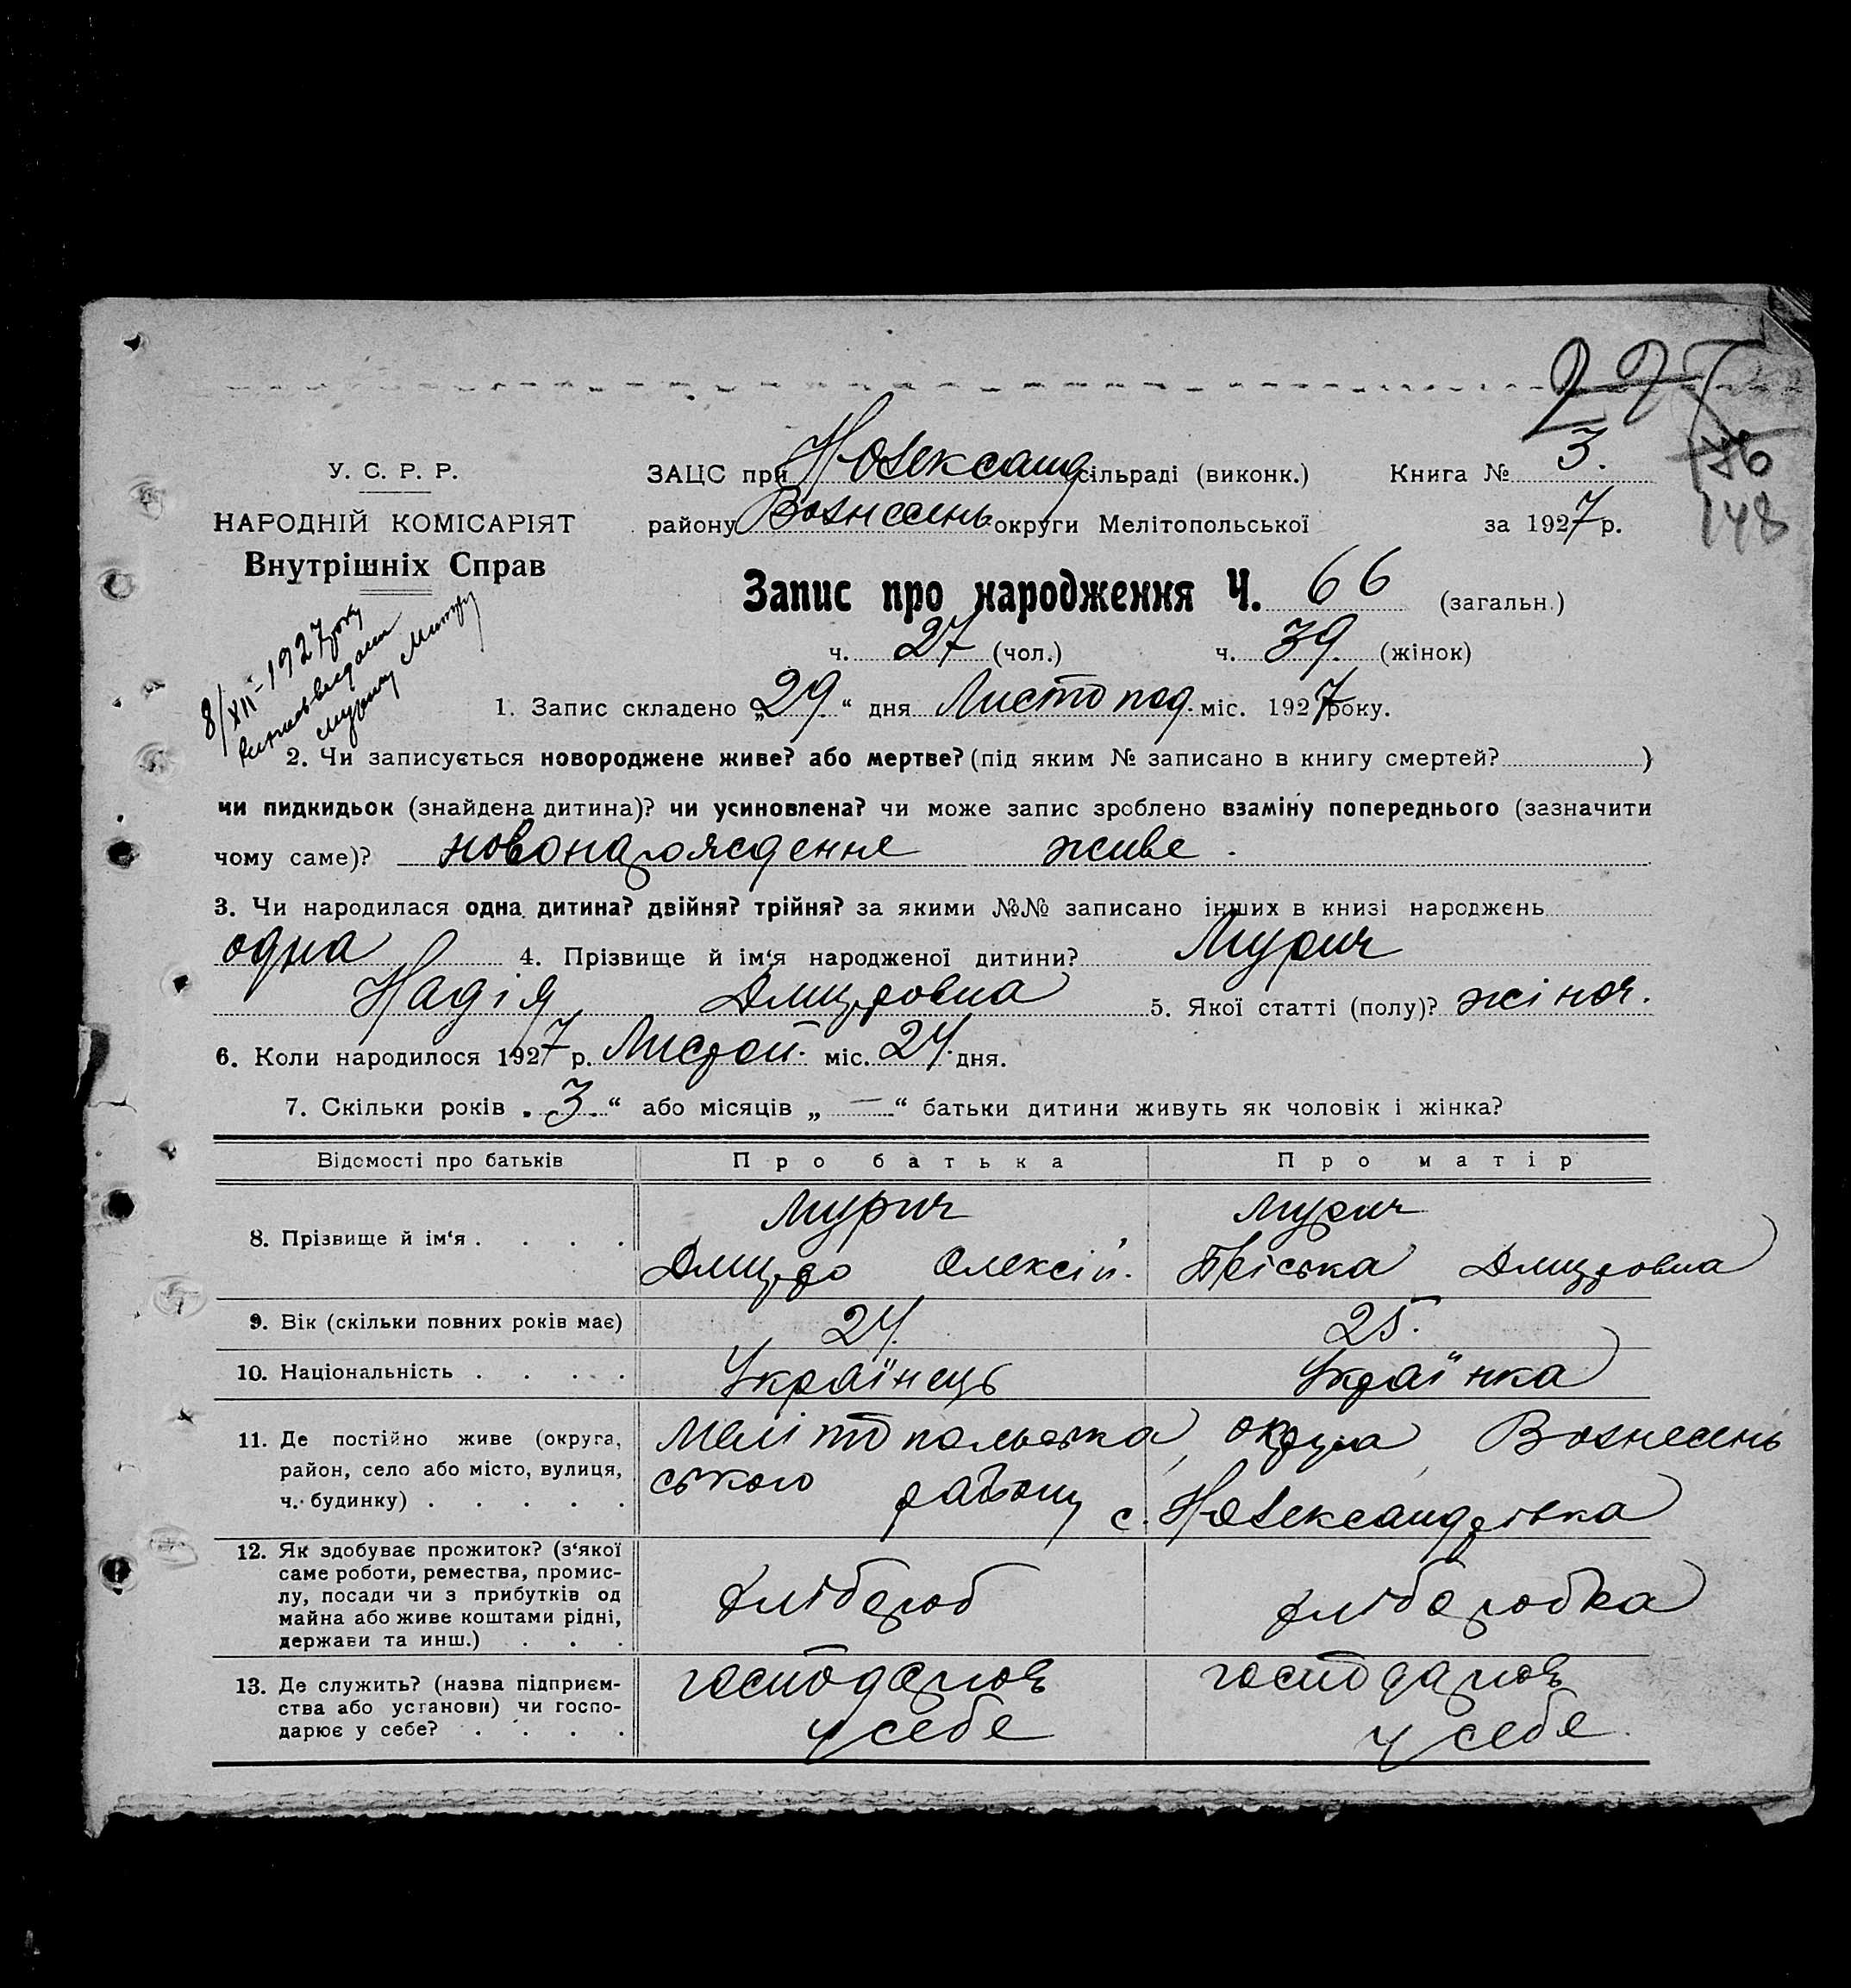 227
У. С. Р. Р.
ЗАЦС при Н Олександ сільраді (виконк.) Книга № 3.
176
НАРОДНІЙ КОМІСАРІЯТ
району Вознесень округи Мелітопольської за 1927 р.
148
Внутрішніх Справ
Запис про народження Ч. 66 (загальн.)
8/XII-1927 року
ч. 27 (чол.) ч. 39. (жінок)
1. Запис складено „29.“ дня Листопад. міс. 1927 року.
2. Чи записується новороджене живе? або мертве? (під яким № записано в книгу смертей? )
чи пидкидьок (знайдена дитина)? чи усиновлена? чи може запис зроблено взаміну попереднього (зазначити
чому саме)? новонарождення живе.
3. Чи народилася одна дитина? двійня? трійня? за якими №№ записано інших в книзі народжень
одна 4. Прізвище й ім‘я народженої дитини? Мурич
Надія Дмитровна 5. Якої статті (полу)? жіноч.
6. Коли народилося 1927 р. Листоп. міс. 24. дня.
7. Скільки років „3.“ або місяців „—“ батьки дитини живуть як чоловік і жінка?
Відомості про батьків Про батька Про матір
8. Прізвище й ім‘я . . . . Мурич Мурич
Дмитро Олексій. Пріська Дмитровна
9. Вік (скільки повних років має) 24. 25.
10. Національність . . . . Українець Українка
11. Де постійно живе (округа, Мелітопольська, округа, Вознесень
район, село або місто, вулиця, ського району с. Н Олександрівка
ч. будинку) . . . . .
12. Як здобуває прожиток? (з‘якої
саме роботи, ремества, промис-
лу, посади чи з прибутків од хлібороб хліборобка
майна або живе коштами рідні,
держави та инш.) . . .
13. Де служить? (назва підприєм- господарює господарює
ства або установи) чи госпо-
дарює у себе? . . . . у себе у себе.